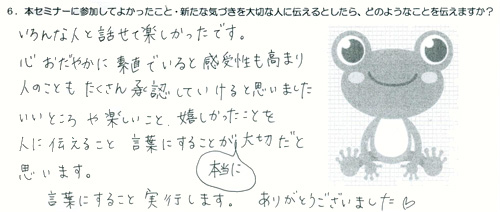 6．本セミナーに参加してよかったこと・新たな気づきを大切な人に伝えるとしたら、どのようなことを伝えますか？
いろんな人と話せて楽しかったです。
心おだやかに素直でいると感受性も高まり
人のこともたくさん承認していけると思いました
いいところや楽しいこと、嬉しかったことを
人に伝えること 言葉にすることが大切だと
本当に
思います。
言葉にすること実行します。 ありがとうございました♡